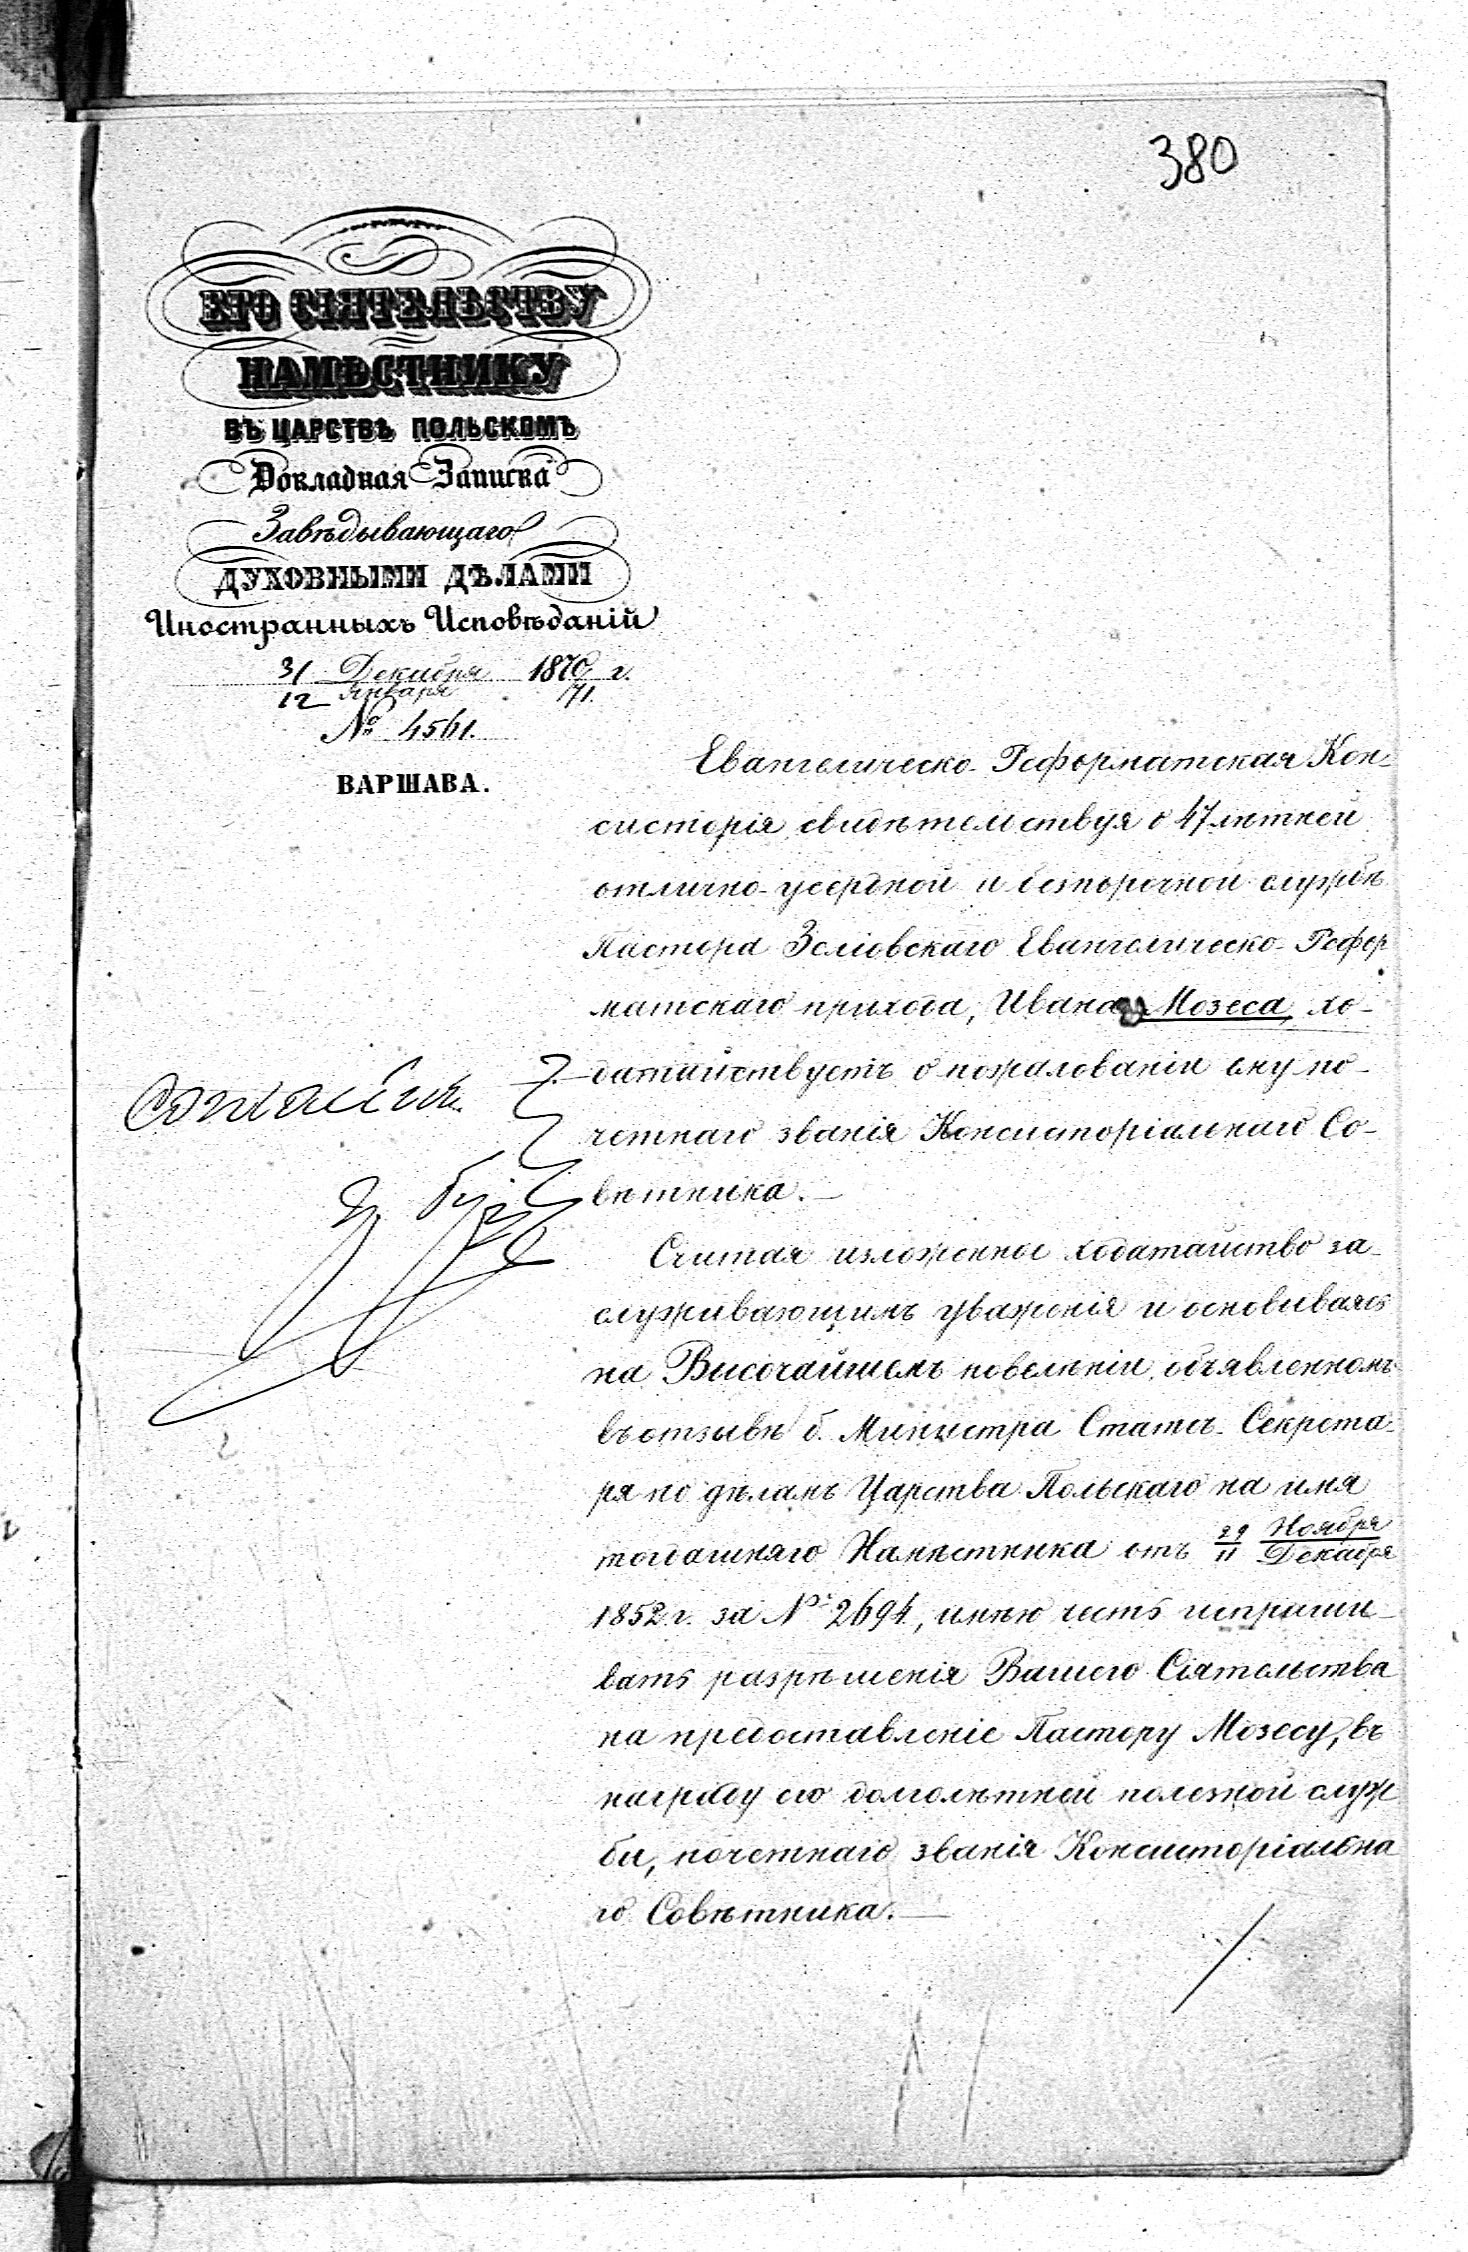 380
ЕГО СІЯТЕЛЬСТВУ
НАМѢСТНИКУ
ВЪ ЦАРСТВѢ ПОЛЬСКОМЪ
Докладная Записка
Завѣдывающаго
ДУХОВНЫМИ ДѢЛАМИ
Иностранныхъ Исповѣданій
31 Декабря 1870 г.
12 Января /71.
№ 4561.
ВАРШАВА.
Евангелическо-Реформатская Кон-
систорія свидѣтельствуя о 47 лѣтней
отлично-усердной и безпорочной службѣ
Пастора Зеліовскаго Евангелическо-Рефор
матскаго прихода, Ивана Мозеса, хо-
датайствуетъ о пожалованіи ему по-
четнаго званія Консисторіальнаго Со-
вѣтника.—
Согласенъ
Считая изложенное ходатайство за-
служивающимъ уваженія и основываясь
на Высочайшемъ повелѣніи, объявленномъ
въ отзывѣ б. Министра Статсъ-Секрета-
ря по дѣламъ Царства Польскаго на имя
тогдашняго Намѣстника отъ 29 Ноября
11 Декабря
1852 г. за № 2694, имѣю честь испраши-
вать разрѣшенія Вашего Сіятельства
на предоставленіе Пастору Мозесу, въ
награду его долголѣтней полезной служ
бы, почетнаго званія Консисторіальна
го Совѣтника.—